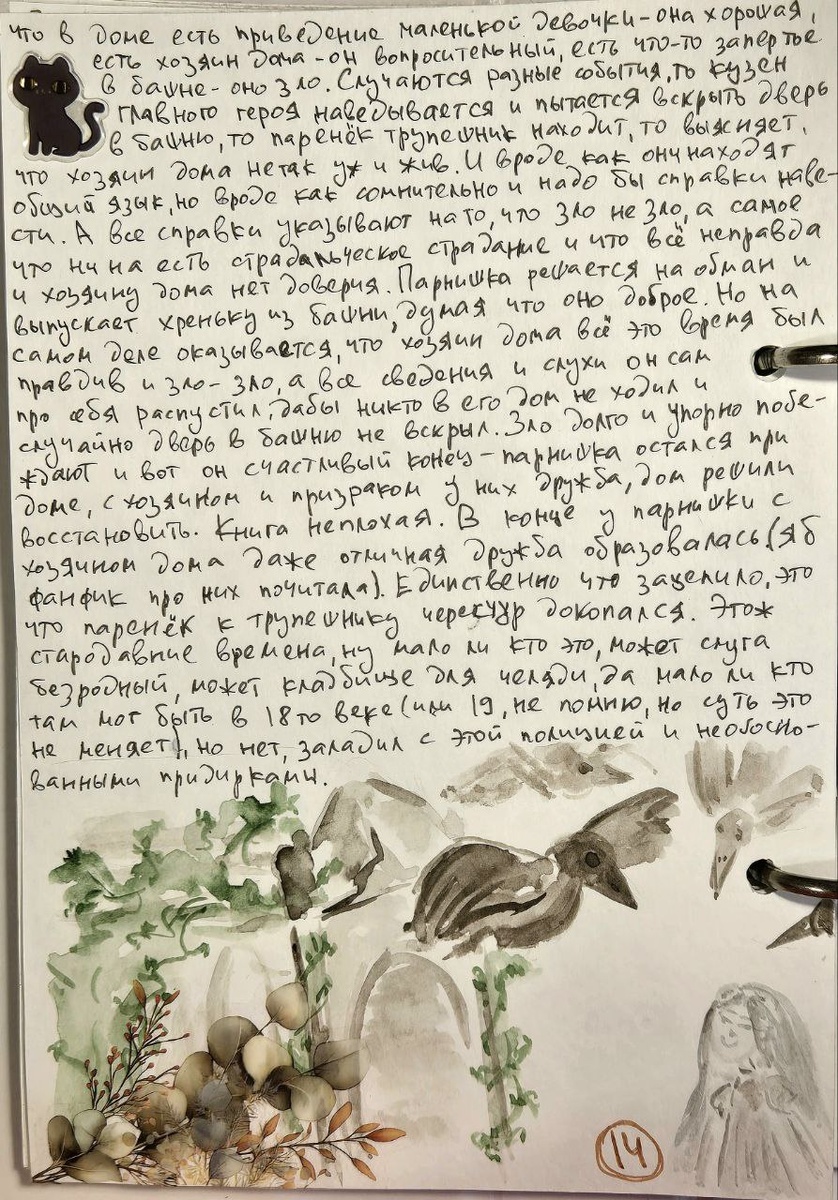 что в доме есть приведение маленькой девочки - она хорошая,
есть хозяин дома - он вопросительный, есть что-то запертое
в башне - оно зло. Случаются разные события, то кузен
главного героя наведывается и пытается вскрыть дверь
в башню, то паренёк трупешник находит, то выясняет,
что хозяин дома не так уж и жив. И вроде как они находят
общий язык, но вроде как сомнительно и надо бы справки наве-
сти. А все справки указывают на то, что зло не зло, а самое
что ни на есть страдальческое страдание и что всё неправда
и хозяину дома нет доверия. Парнишка решается на обман и
выпускает хреньку из башни, думая что оно доброе. Но на
самом деле оказывается, что хозяин дома всё это время был
правдив и зло - зло, а все сведения и слухи он сам
про себя распустил, дабы никто в его дом не ходил и
случайно дверь в башню не вскрыл. Зло долго и упорно побе-
ждают и вот он счастливый конец - парнишка остался при
доме, с хозяином и призраком у них дружба, дом решили
восстановить. Книга неплохая. В конце у парнишки с
хозяином дома даже отличная дружба образовалась (я б
фанфик про них почитала). Единственно что зацепило, это
что паренёк к трупешнику чересчур докопался. Этож
стародавние времена, ну мало ли кто это, может слуга
безродный, может кладбище для челяди, да мало ли кто
там мог быть в 18 то веке (или 19, не помню, но суть это
не меняет), но нет, заладил с этой полицией и необосно-
ванными придирками.
14